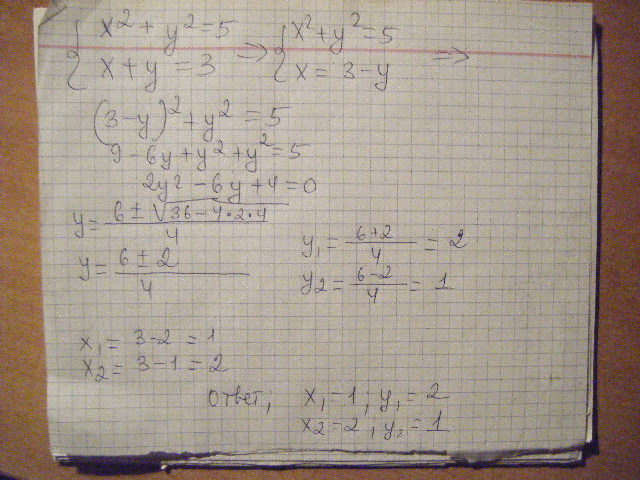 x² + y² = 5 => x² + y² = 5 =>
x + y = 3 x = 3 - y
(3 - y)² + y² = 5
9 - 6y + y² + y² = 5
2y² - 6y + 4 = 0
y = (6 ± √(36 - 4·2·4))/4
y = (6 ± 2)/4
y₁ = (6+2)/4 = 2
y₂ = (6-2)/4 = 1
x₁ = 3-2 = 1
x₂ = 3-1 = 2
Ответ; x₁ = 1; y₁ = 2
x₂ = 2, y₂ = 1